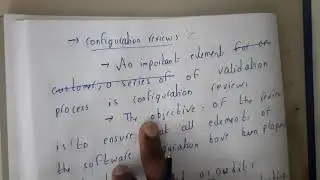 → configuration reviews :-
→ An important element for cu
customer, a series of of validation
process is configuration review.
→ The objective of the review
is to ensure that all elements of
the software configuration have been
audit